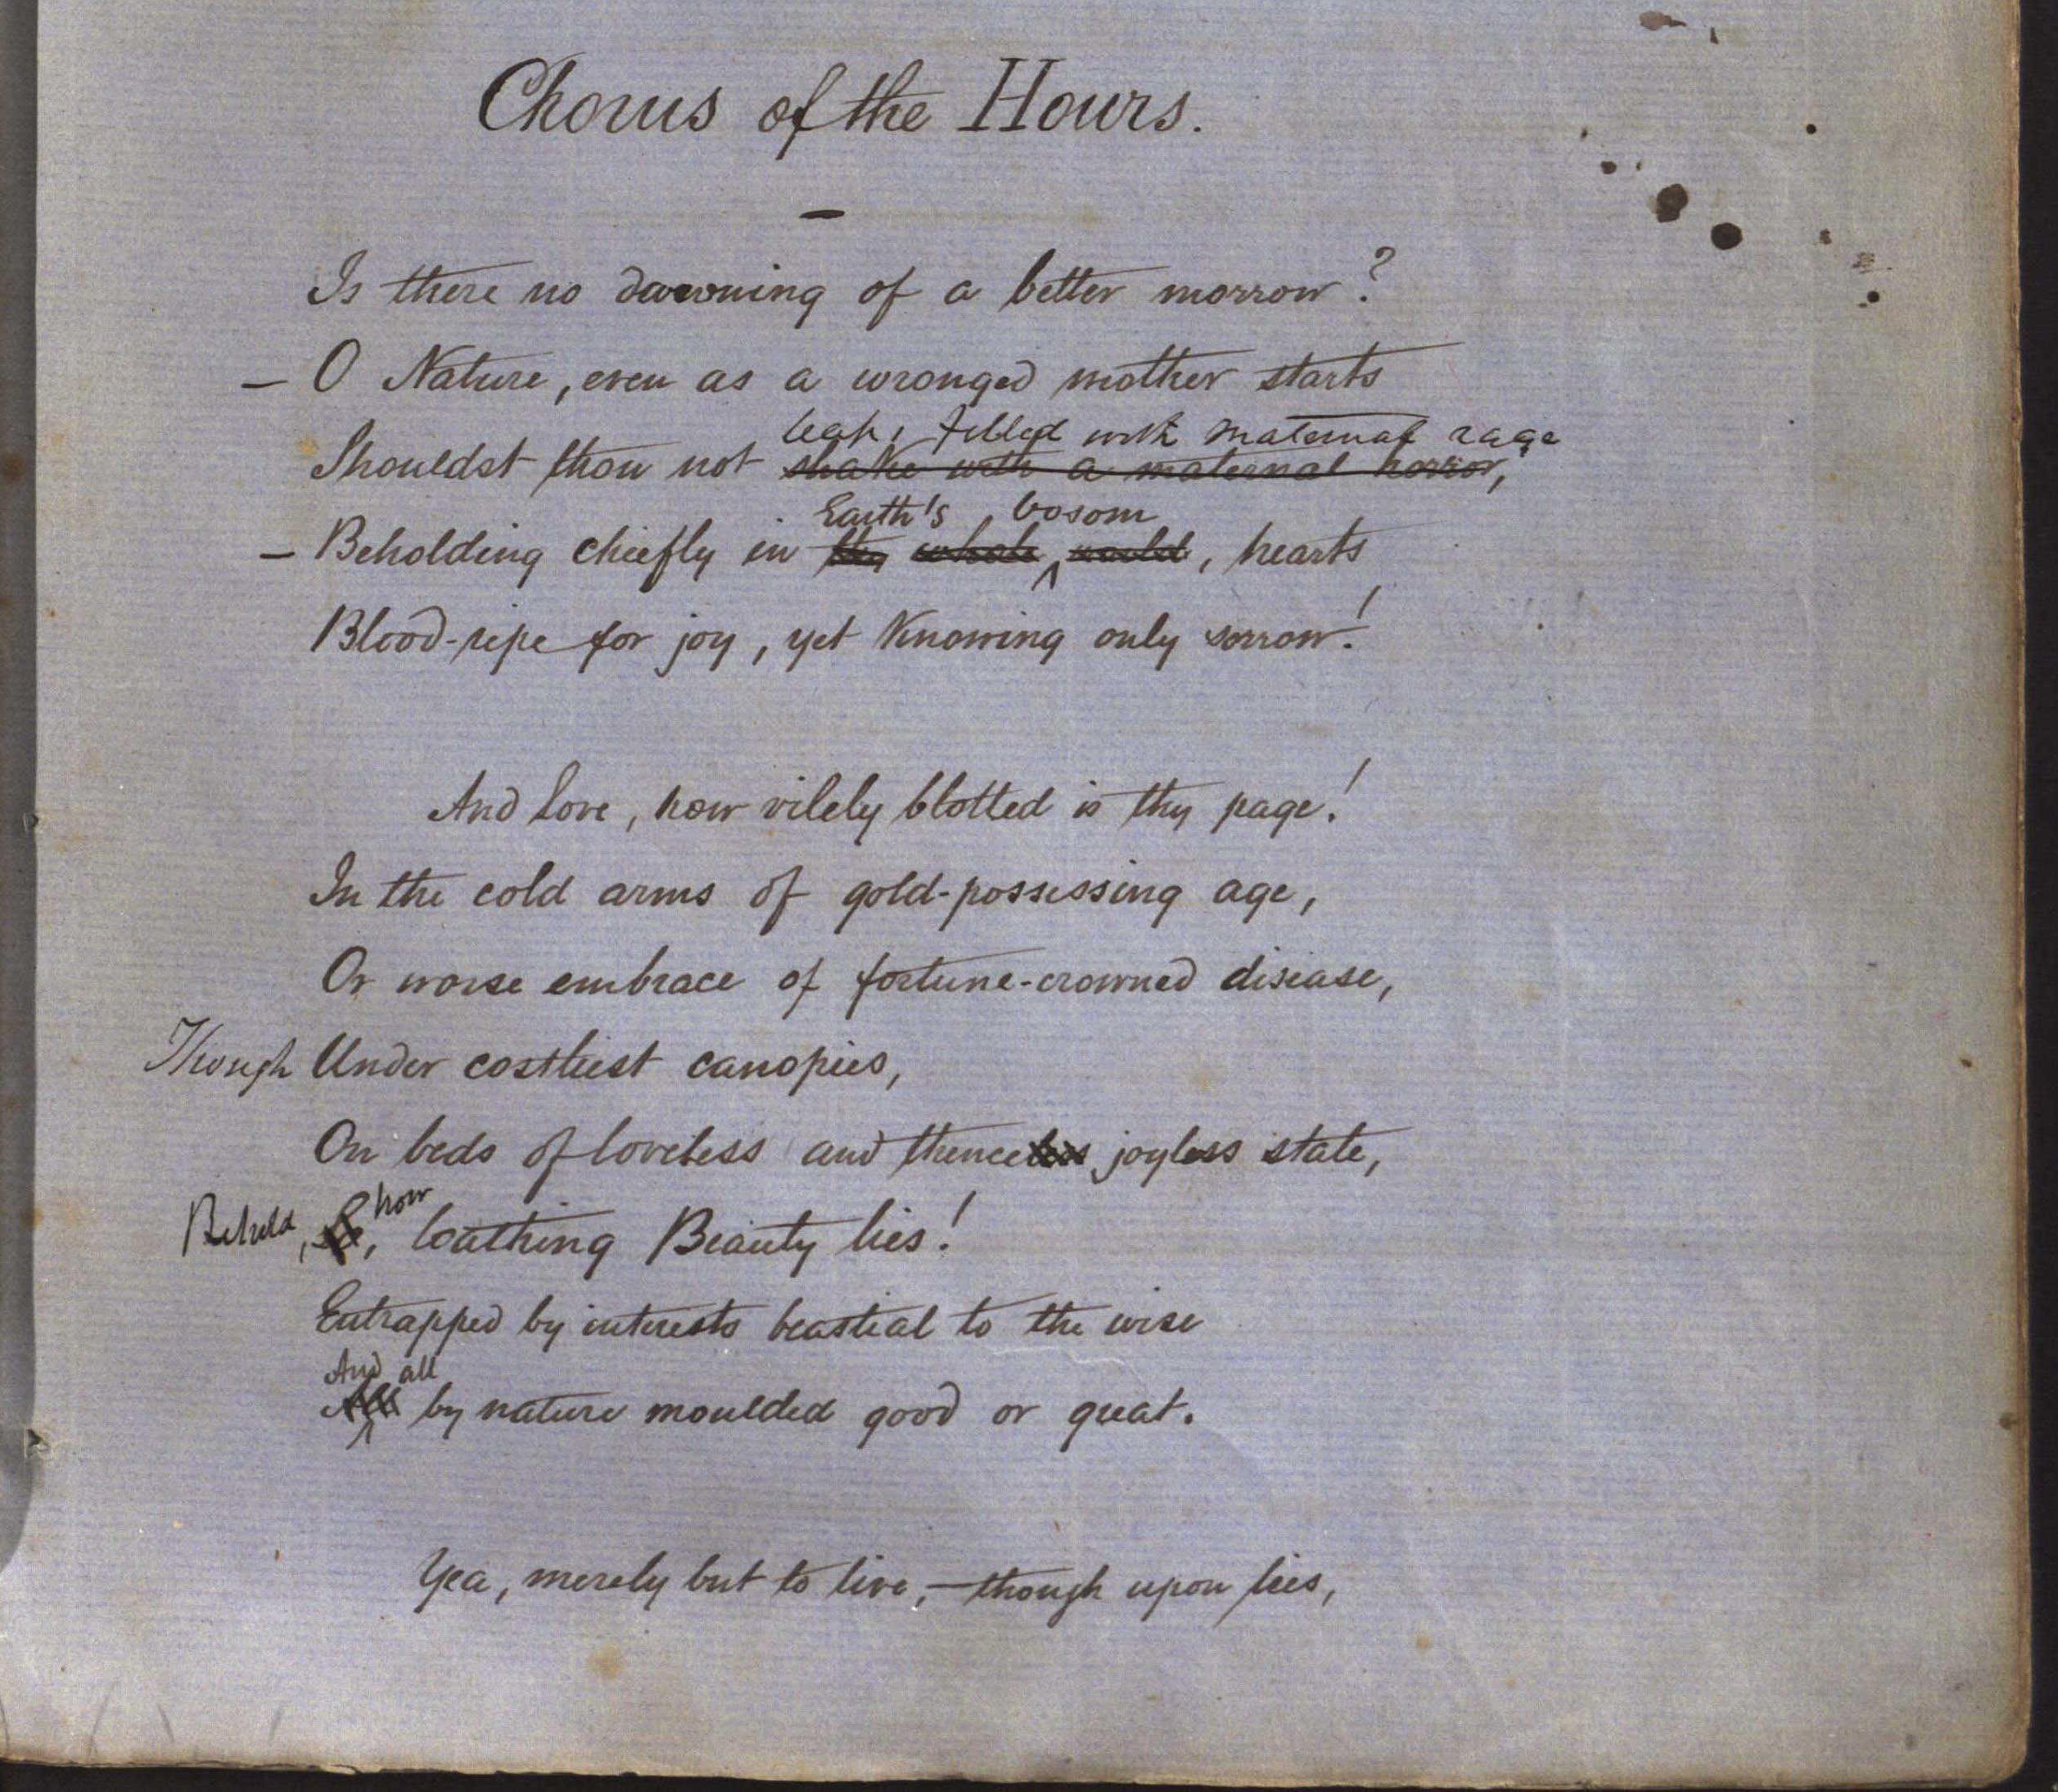 Chorus of the Hours.
Is there no dawning of a better morrow?
— O Nature, even as a wronged mother starts
leap, filled with maternal rage
Shouldst thou not shake with a maternal horror,
Earth's bosom
— Beholding chiefly in thy whole world, hearts
Blood-ripe for joy, yet knowing only sorrow!
And Love, how vilely blotted is thy page!
In the cold arms of gold-possessing age,
Or worse embrace of fortune-crowned disease,
Though Under costliest canopies,
On beds of loveless and thence joyless state,
how
Behold, loathing Beauty lies!
Entrapped by interests beastial to the wise
And all
All by nature moulded good or great.
Yea, merely but to live,—though upon lies,